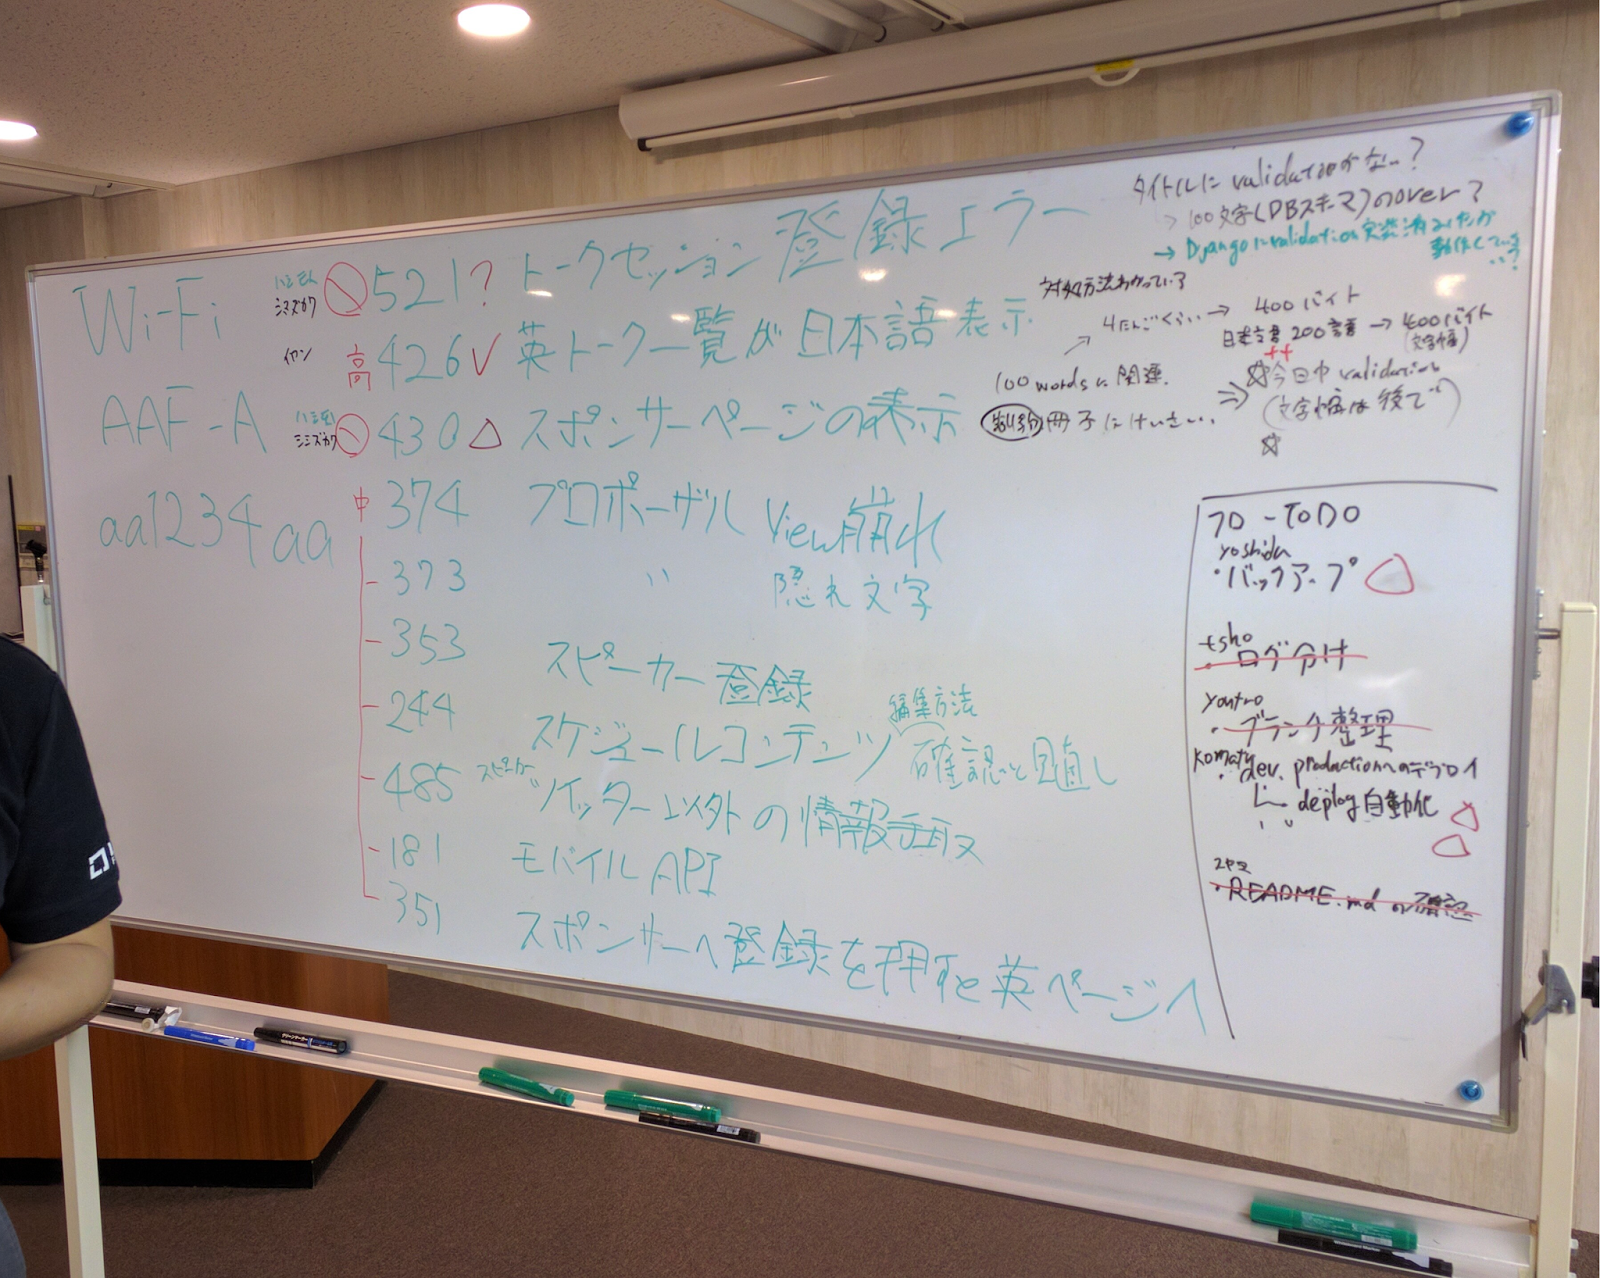 Wi-Fi
AAF-A
aa1234aa
シミズカワ
521? トークセッション 登録エラー
イヤン
高 426 英トーク一覧が日本語表示
430 △ スポンサーページの表示
中 374 プロポーザル View崩れ
373 〃 隠れ文字
353 スピーカー登録
編集方法
244 スケジュールコンテンツ 確認と見直し
485 スピーカー ツイッター以外の情報手取
181 モバイルAPI
351 スポンサーへ登録を押すと英ページへ
タイトルに validationがない?
→ 100文字(DBスキーマ)のover?
→ Djangoにvalidation実装済みだが
動作していない?
対処方法わかっている
→ 400バイト
200語 → 400バイト
(文字幅)
100 wordsに関連.
冊子にけいさい
⇒ ☆今日中 validation
(文字幅は後で)
☆
フロ-TODO
yoshida
・バックアップ △
tsho
・ログ分け
・ブランチ整理
・dev, productionへのデプロイ
deploy自動化
△
△
・README.md の確認